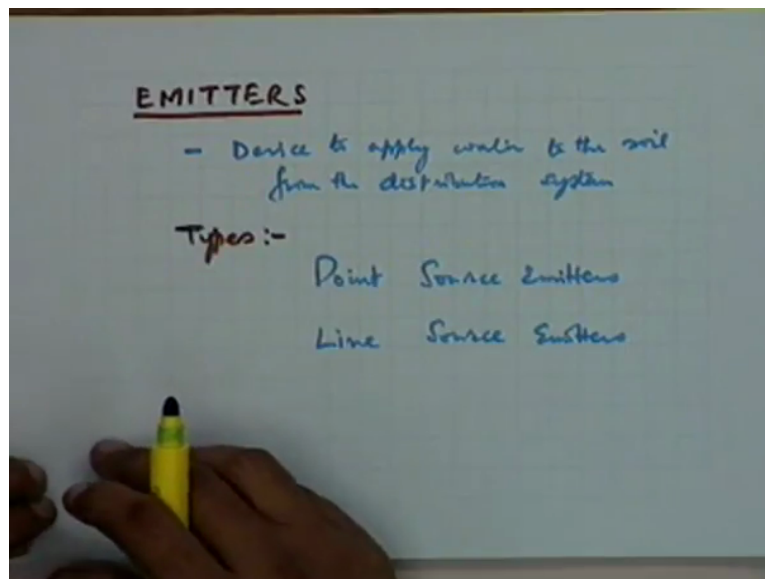 EMITTERS
- Device to apply water to the soil
from the distribution system
Types:-
Point Source Emitters
Line Source Emitters